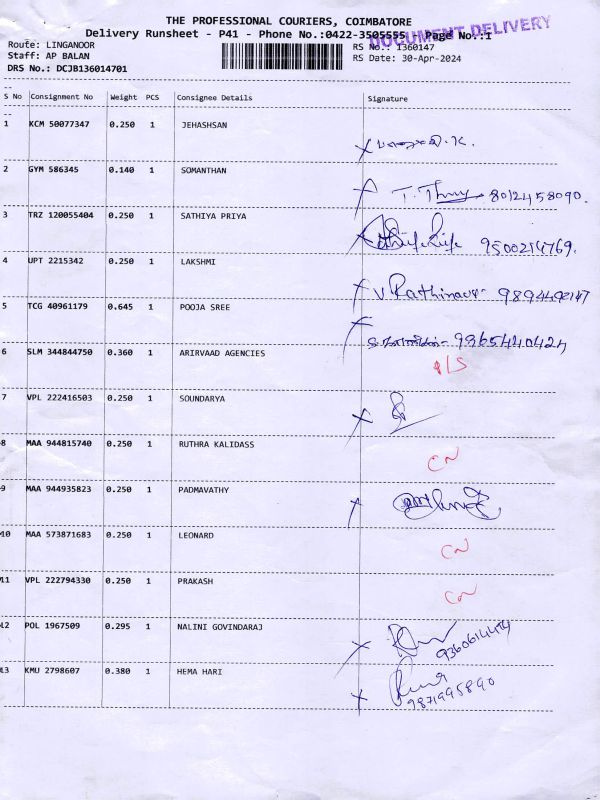 THE PROFESSIONAL COURIERS, COIMBATORE
Delivery Runsheet - P41 - Phone No.:0422-3505555 Page No.:1
DOCUMENT DELIVERY
Route: LINGANOOR RS No.: 1360147
Staff: AP BALAN RS Date: 30-Apr-2024
DRS No.: DCJB136014701
S No Consignment No Weight PCS Consignee Details Signature
1 KCM 50077347 0.250 1 JEHASHSAN
2 GYM 586345 0.140 1 SOMANTHAN
8012458090.
3 TRZ 120055404 0.250 1 SATHIYA PRIYA
4 UPT 2215342 0.250 1 LAKSHMI
V. Rathina
5 TCG 40961179 0.645 1 POOJA SREE
9865440424
6 SLM 344844750 0.360 1 ARIRVAAD AGENCIES
7 VPL 222416503 0.250 1 SOUNDARYA
8 MAA 944815740 0.250 1 RUTHRA KALIDASS
CN
9 MAA 944935823 0.250 1 PADMAVATHY
10 MAA 573871683 0.250 1 LEONARD
CN
11 VPL 222794330 0.250 1 PRAKASH
CN
12 POL 1967509 0.295 1 NALINI GOVINDARAJ
13 KMU 2798607 0.380 1 HEMA HARI
9871995890